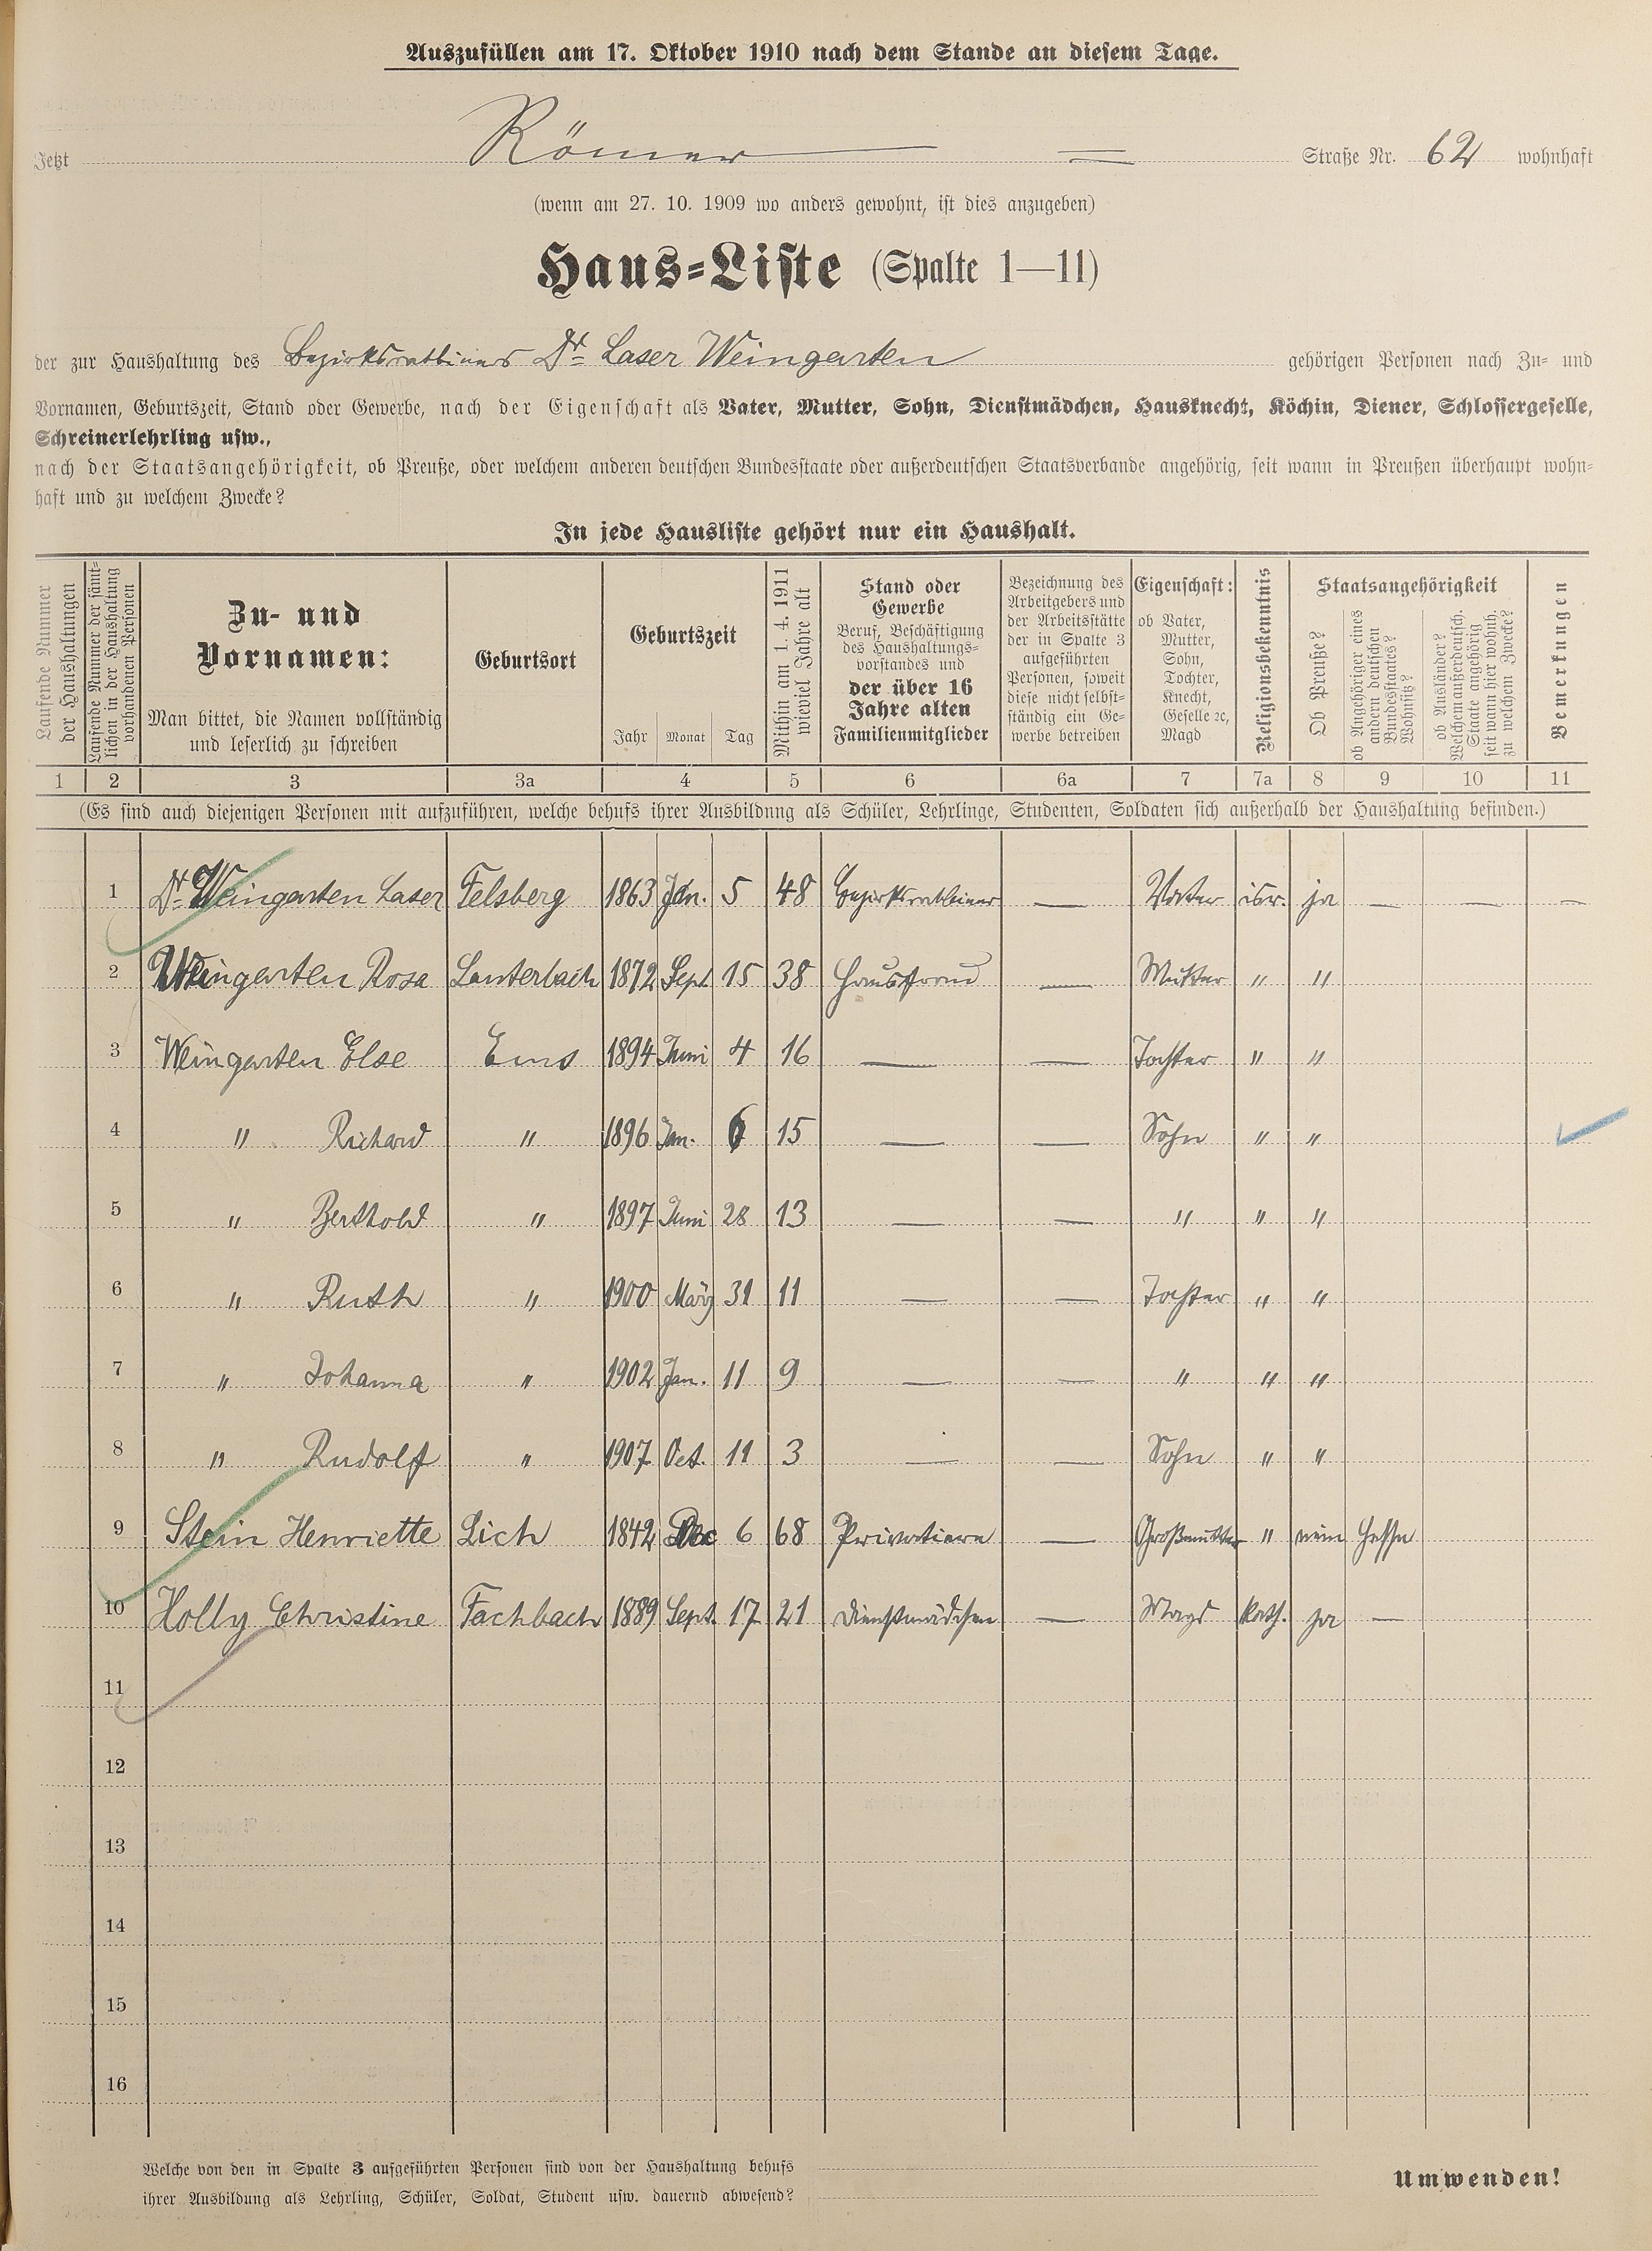 Auszufüllen am 17. Oktober 1910 nach dem Stande an diesem Tage.
Jetzt Römer Straße Nr. 62 wohnhaft
(wenn am 27. 10. 1909 wo anders gewohnt, ist dies anzugeben)
Haus-Liste (Spalte 1—11)
der zur Haushaltung des Bezirksrabbiners Dr. Laser Weingarten gehörigen Personen nach Zu- und
Vornamen, Geburtszeit, Stand oder Gewerbe, nach der Eigenschaft als Vater, Mutter, Sohn, Dienstmädchen, Hausknecht, Köchin, Diener, Schlossergeselle,
Schreinerlehrling usw.,
nach der Staatsangehörigkeit, ob Preuße, oder welchem anderen deutschen Bundesstaate oder außerdeutschen Staatsverbande angehörig, seit wann in Preußen überhaupt wohn-
haft und zu welchem Zwecke?
In jede Hausliste gehört nur ein Haushalt.
Laufende Nummer
der Haushaltungen
Laufende Nummer der sämt-
lichen in der Haushaltung
vorhandenen Personen
Zu- und
Vornamen:
Man bittet, die Namen vollständig
und leserlich zu schreiben
Geburtsort
Geburtszeit
Jahr Monat Tag
Mithin am 1. 4. 1911
wieviel Jahre alt
Stand oder
Gewerbe
Beruf, Beschäftigung
des Haushaltungs-
vorstandes und
der über 16
Jahre alten
Familienmitglieder
Bezeichnung des
Arbeitgebers und
der Arbeitsstätte
der in Spalte 3
aufgeführten
Personen, soweit
diese nicht selbst-
ständig ein Ge-
werbe betreiben
Eigenschaft:
ob Vater,
Mutter,
Sohn,
Tochter,
Knecht,
Geselle ꝛc,
Magd
Religionsbekenntnis
Staatsangehörigkeit
Ob Preuße?
ob Angehöriger eines
andern deutschen
Bundesstaates?
Wohnsitz?
ob Ausländer?
Welchem außerdeutsch.
Staate angehörig
seit wann hier wohnh.
zu welchem Zwecke?
Bemerkungen
1 2 3 3a 4 5 6 6a 7 7a 8 9 10 11
(Es sind auch diejenigen Personen mit aufzuführen, welche behufs ihrer Ausbildung als Schüler, Lehrlinge, Studenten, Soldaten sich außerhalb der Haushaltung befinden.)
1 Dr. Weingarten Laser Felsberg 1863 Jan. 5 48 Bezirksrabbiner — Vater isr. ja — — —
2 Weingarten Rosa Lauterbach 1872 Sept 15 38 Hausfrau — Mutter " "
3 Weingarten Else Ems 1894 Juni 4 16 — — Tochter " "
4 " Richard " 1896 Jan. 6 15 — — Sohn " "
5 " Berthold " 1897 Juni 28 13 — — " " "
6 " Ruth " 1900 März 31 11 — — Tochter " "
7 " Johanna " 1902 Jan. 11 9 — — " " "
8 " Rudolf " 1907 Oct. 11 3 — — Sohn " "
9 Stein Henriette Lich 1842 Dec 6 68 Privatiere — Großmutter " nein Hessen
10 Holly Christine Fachbach 1889 Sept. 17 21 Dienstmädchen — Magd kath. ja —
11
12
13
14
15
16
Welche von den in Spalte 3 aufgeführten Personen sind von der Haushaltung behufs
ihrer Ausbildung als Lehrling, Schüler, Soldat, Student usw. dauernd abwesend?
Umwenden!